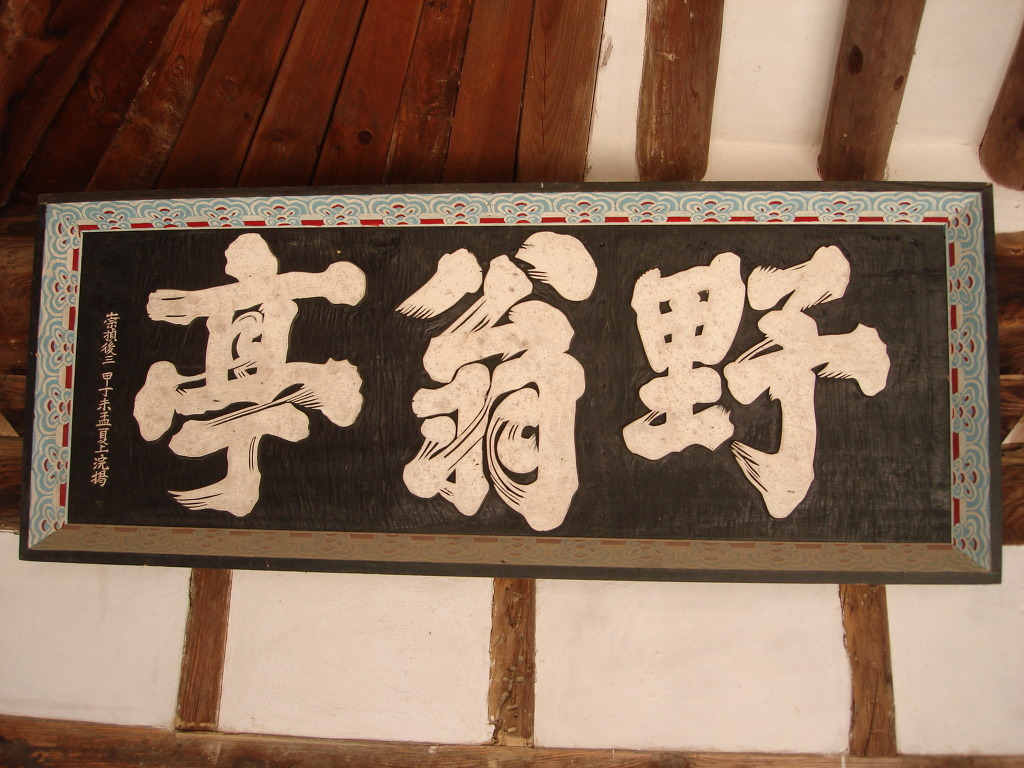 野翁亭
崇禎後三 甲丁未孟夏上浣揭